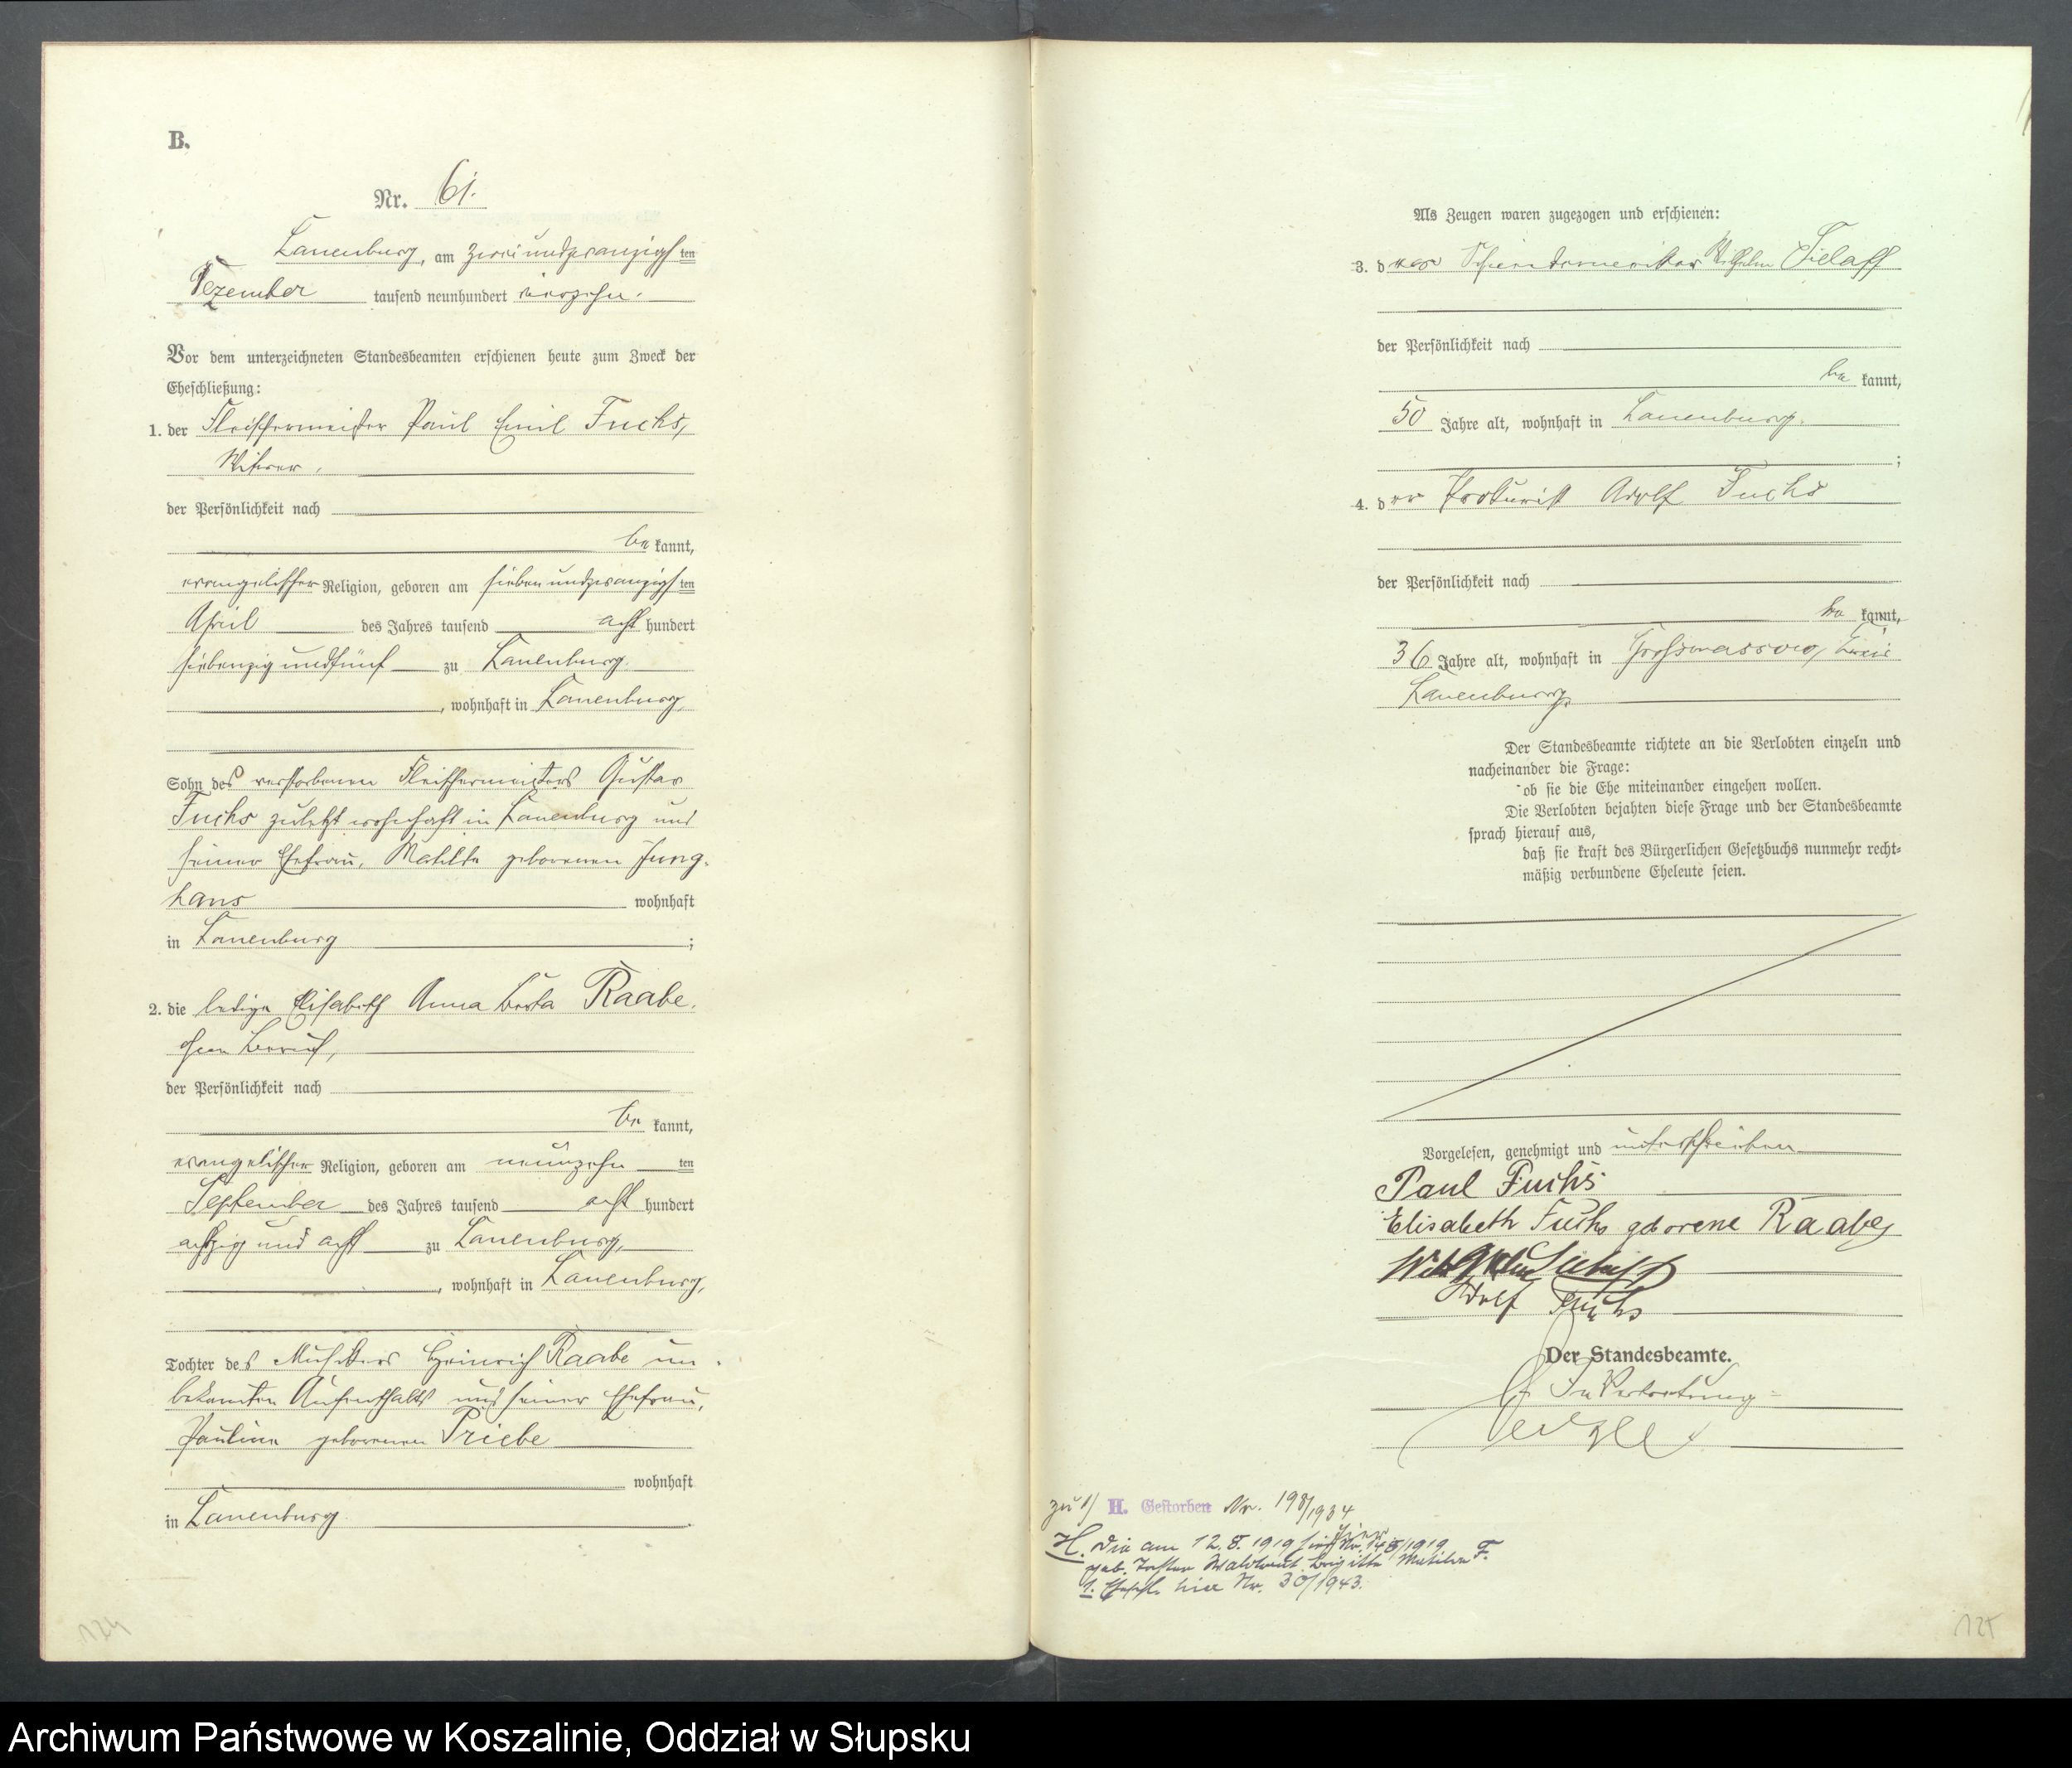 B.
Nr. 61.
Lauenburg, am zweiundzwanzigsten
Dezember tausend neunhundert vierzehn.
Vor dem unterzeichneten Standesbeamten erschienen heute zum Zweck der
Eheschließung:
1. der Fleischermeister Paul Emil Fuchs,
Witwer,
der Persönlichkeit nach
be kannt,
evangelischer Religion, geboren am siebenundzwanzigsten
April des Jahres tausend acht hundert
siebenzig und fünf zu Lauenburg
, wohnhaft in Lauenburg,
Sohn des verstorbenen Fleischermeisters Gustav
Fuchs zuletzt wohnhaft in Lauenburg und
seiner Ehefrau, Matilde geborenen Jung-
hans wohnhaft
in Lauenburg ;
2. die ledige Elisabeth Anna Berta Raabe,
ohne Beruf,
der Persönlichkeit nach
be kannt,
evangelischer Religion, geboren am neunzehn ten
September des Jahres tausend acht hundert
achtzig und acht zu Lauenburg,
, wohnhaft in Lauenburg,
Tochter des Musikers Heinrich Raabe un-
bekannten Aufenthalts und seiner Ehefrau,
Pauline geborenen Priebe
wohnhaft
in Lauenburg .
124
Als Zeugen waren zugezogen und erschienen:
3. der Wilhelm
der Persönlichkeit nach
be kannt,
50 Jahre alt, wohnhaft in Lauenburg.
;
4. der Prokurist Adolf Fuchs
der Persönlichkeit nach
be kannt,
36 Jahre alt, wohnhaft in Großmassow, Kreis
Lauenburg.
Der Standesbeamte richtete an die Verlobten einzeln und
nacheinander die Frage:
ob sie die Ehe miteinander eingehen wollen.
Die Verlobten bejahten diese Frage und der Standesbeamte
sprach hierauf aus,
daß sie kraft des Bürgerlichen Gesetzbuchs nunmehr recht-
mäßig verbundene Eheleute seien.
Vorgelesen, genehmigt und unterschrieben
Paul Fuchs
Elisabeth Fuchs geborene Raabe
Adolf Fuchs
Der Standesbeamte.
In Vertretung
zu 1) H. Gestorben Nr. 198/1934
H. Die am 12.8.1919 hier Nr. 148/1919
geb. Tochter Waltraut Brigitte Matilde F.
1. Eheschl. hier Nr. 30/1943.
125
Archiwum Państwowe w Koszalinie, Oddział w Słupsku